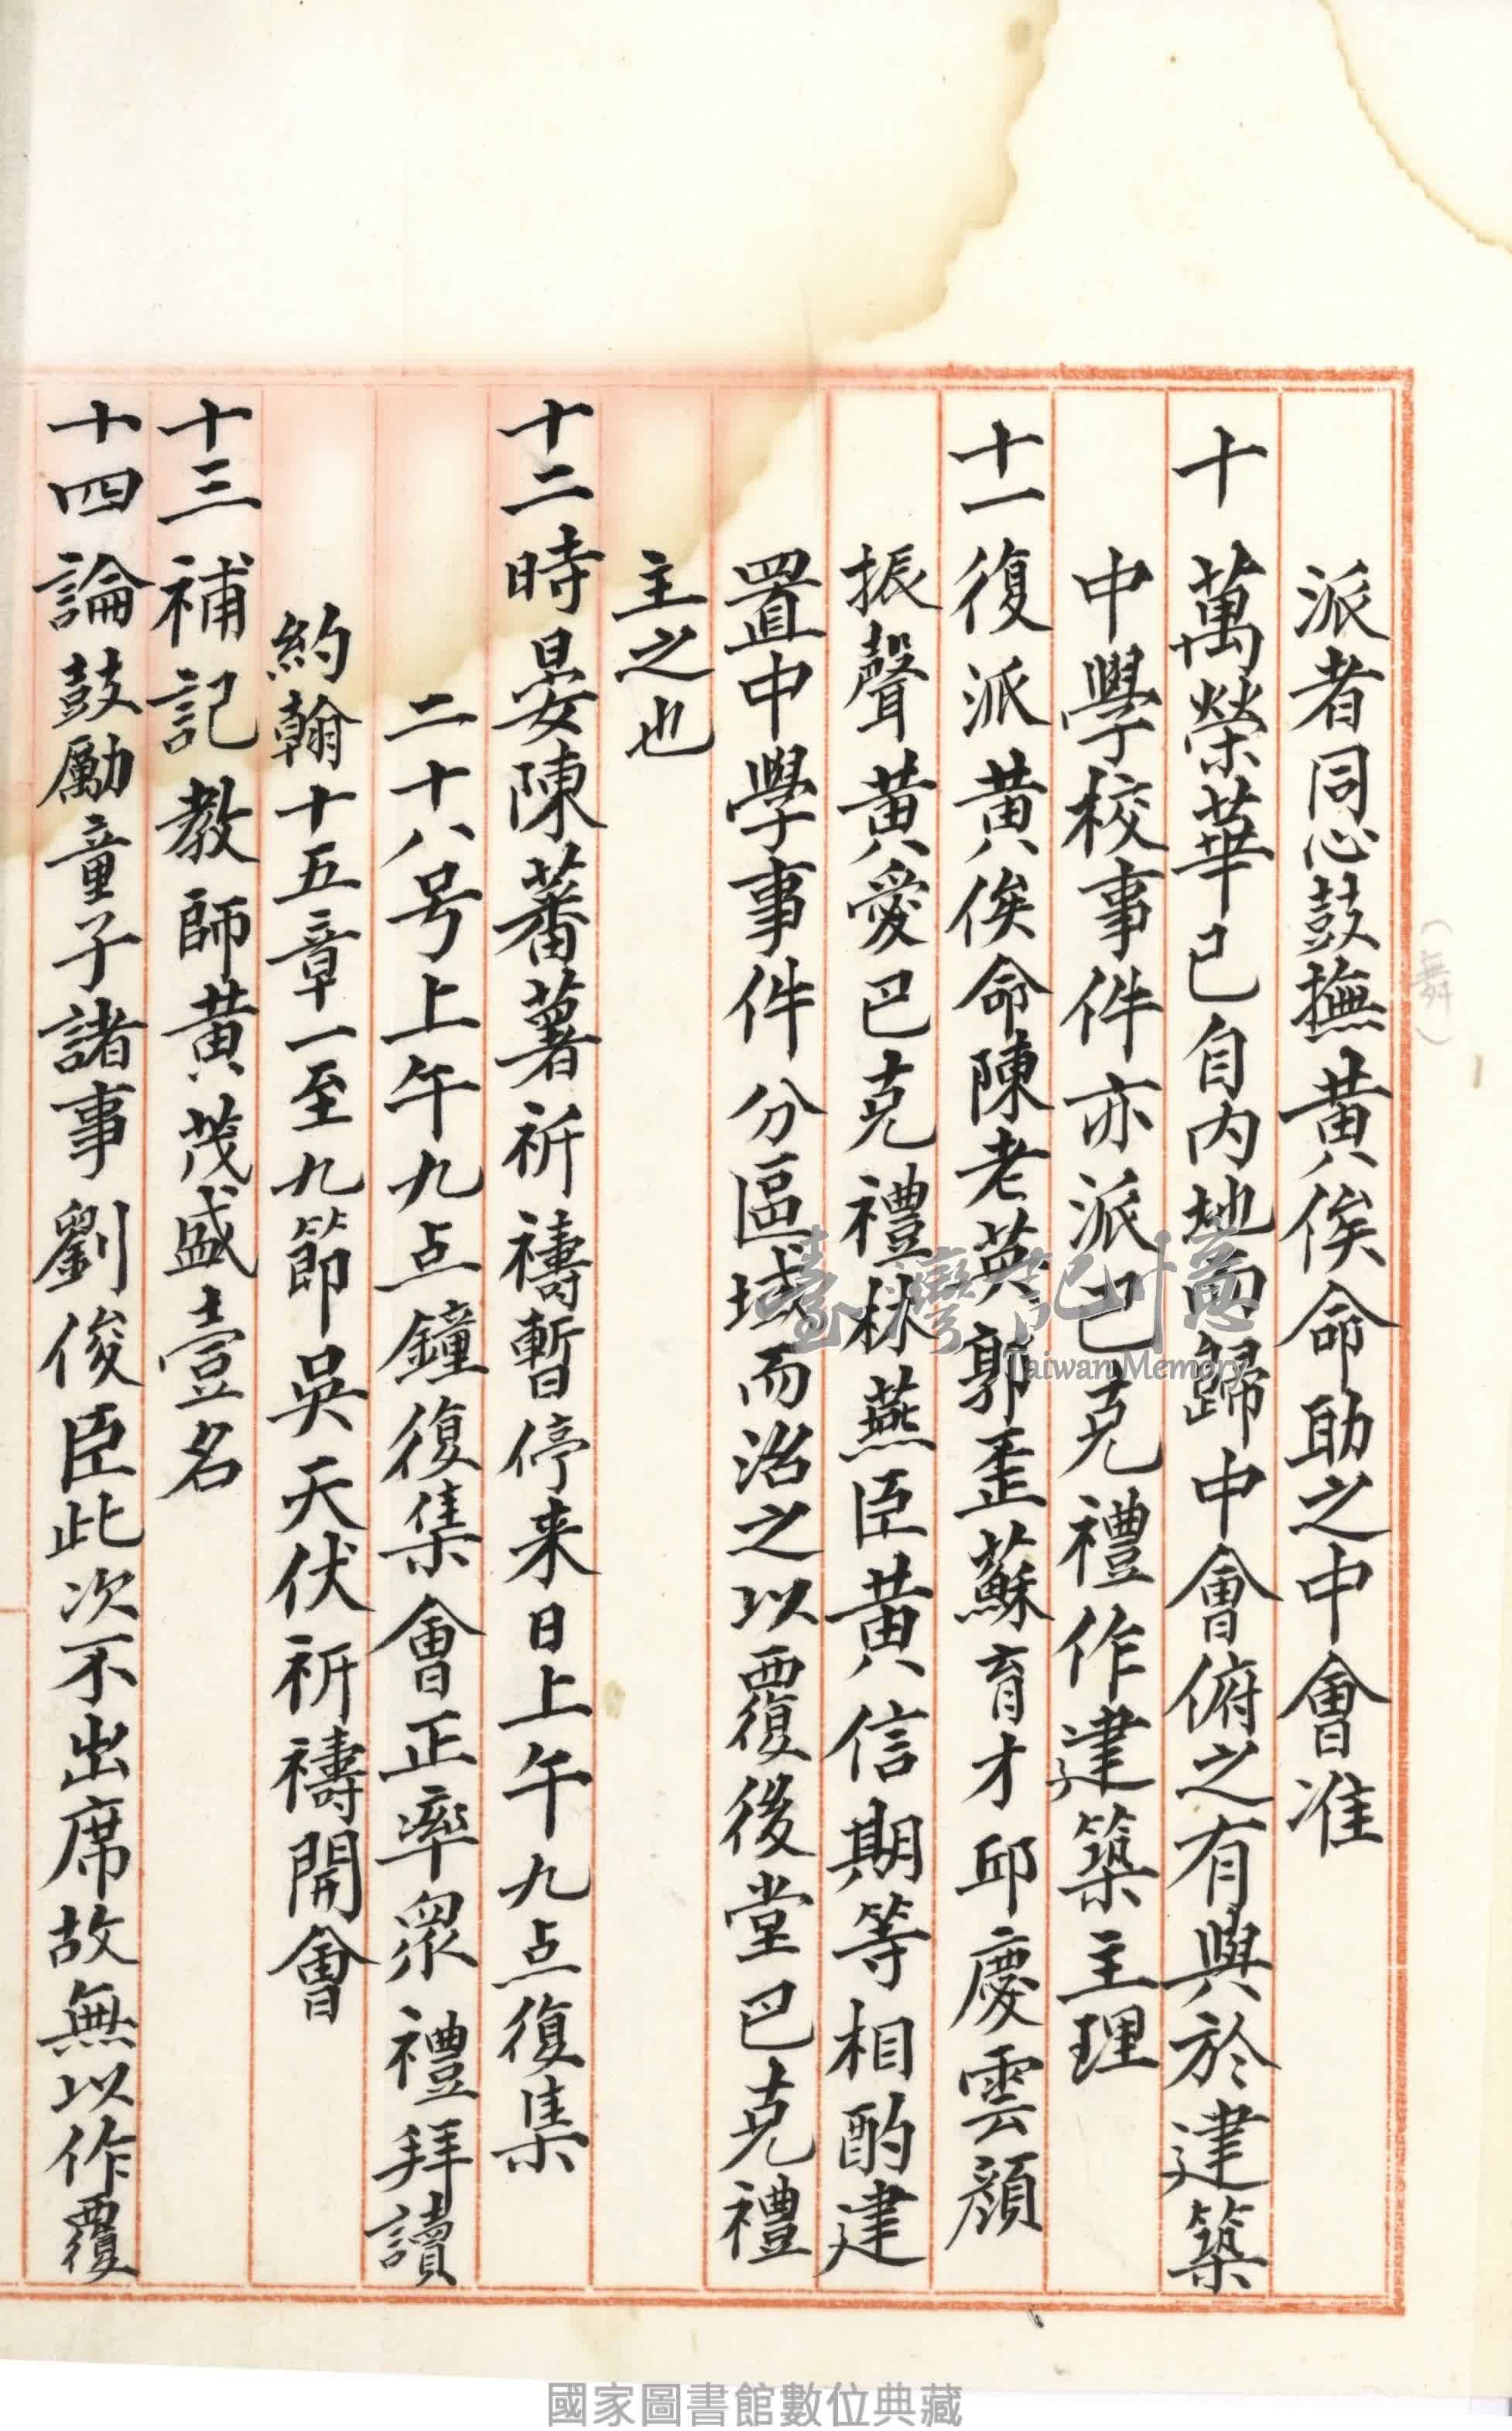 派者同心鼓撫黄俟命助之中會准
(舞)
十 萬榮華已自内地而歸中會俯之有與於建築
中學校事件亦派巴克禮作建築主理
十一復派黄俟命陳老英郭𦬣蘇育才邱慶雲顔
振聲黄愛巴克禮林燕臣黄信期等相酌建
置中學事件分區域而治之以覆後堂巴克禮
主之也
十二時晏陳蕃薯祈禱暫停来日上午九点復集
二十八号上午九点鐘復集會正率衆禮拜讀
約翰十五章一至九節吳天伏祈禱開會
十三補記教師黄茂盛壹名
十四論鼓勵童子諸事劉俊臣此次不出席故無以作覆
臺灣記憶
Taiwan Memory
國家圖書館數位典藏